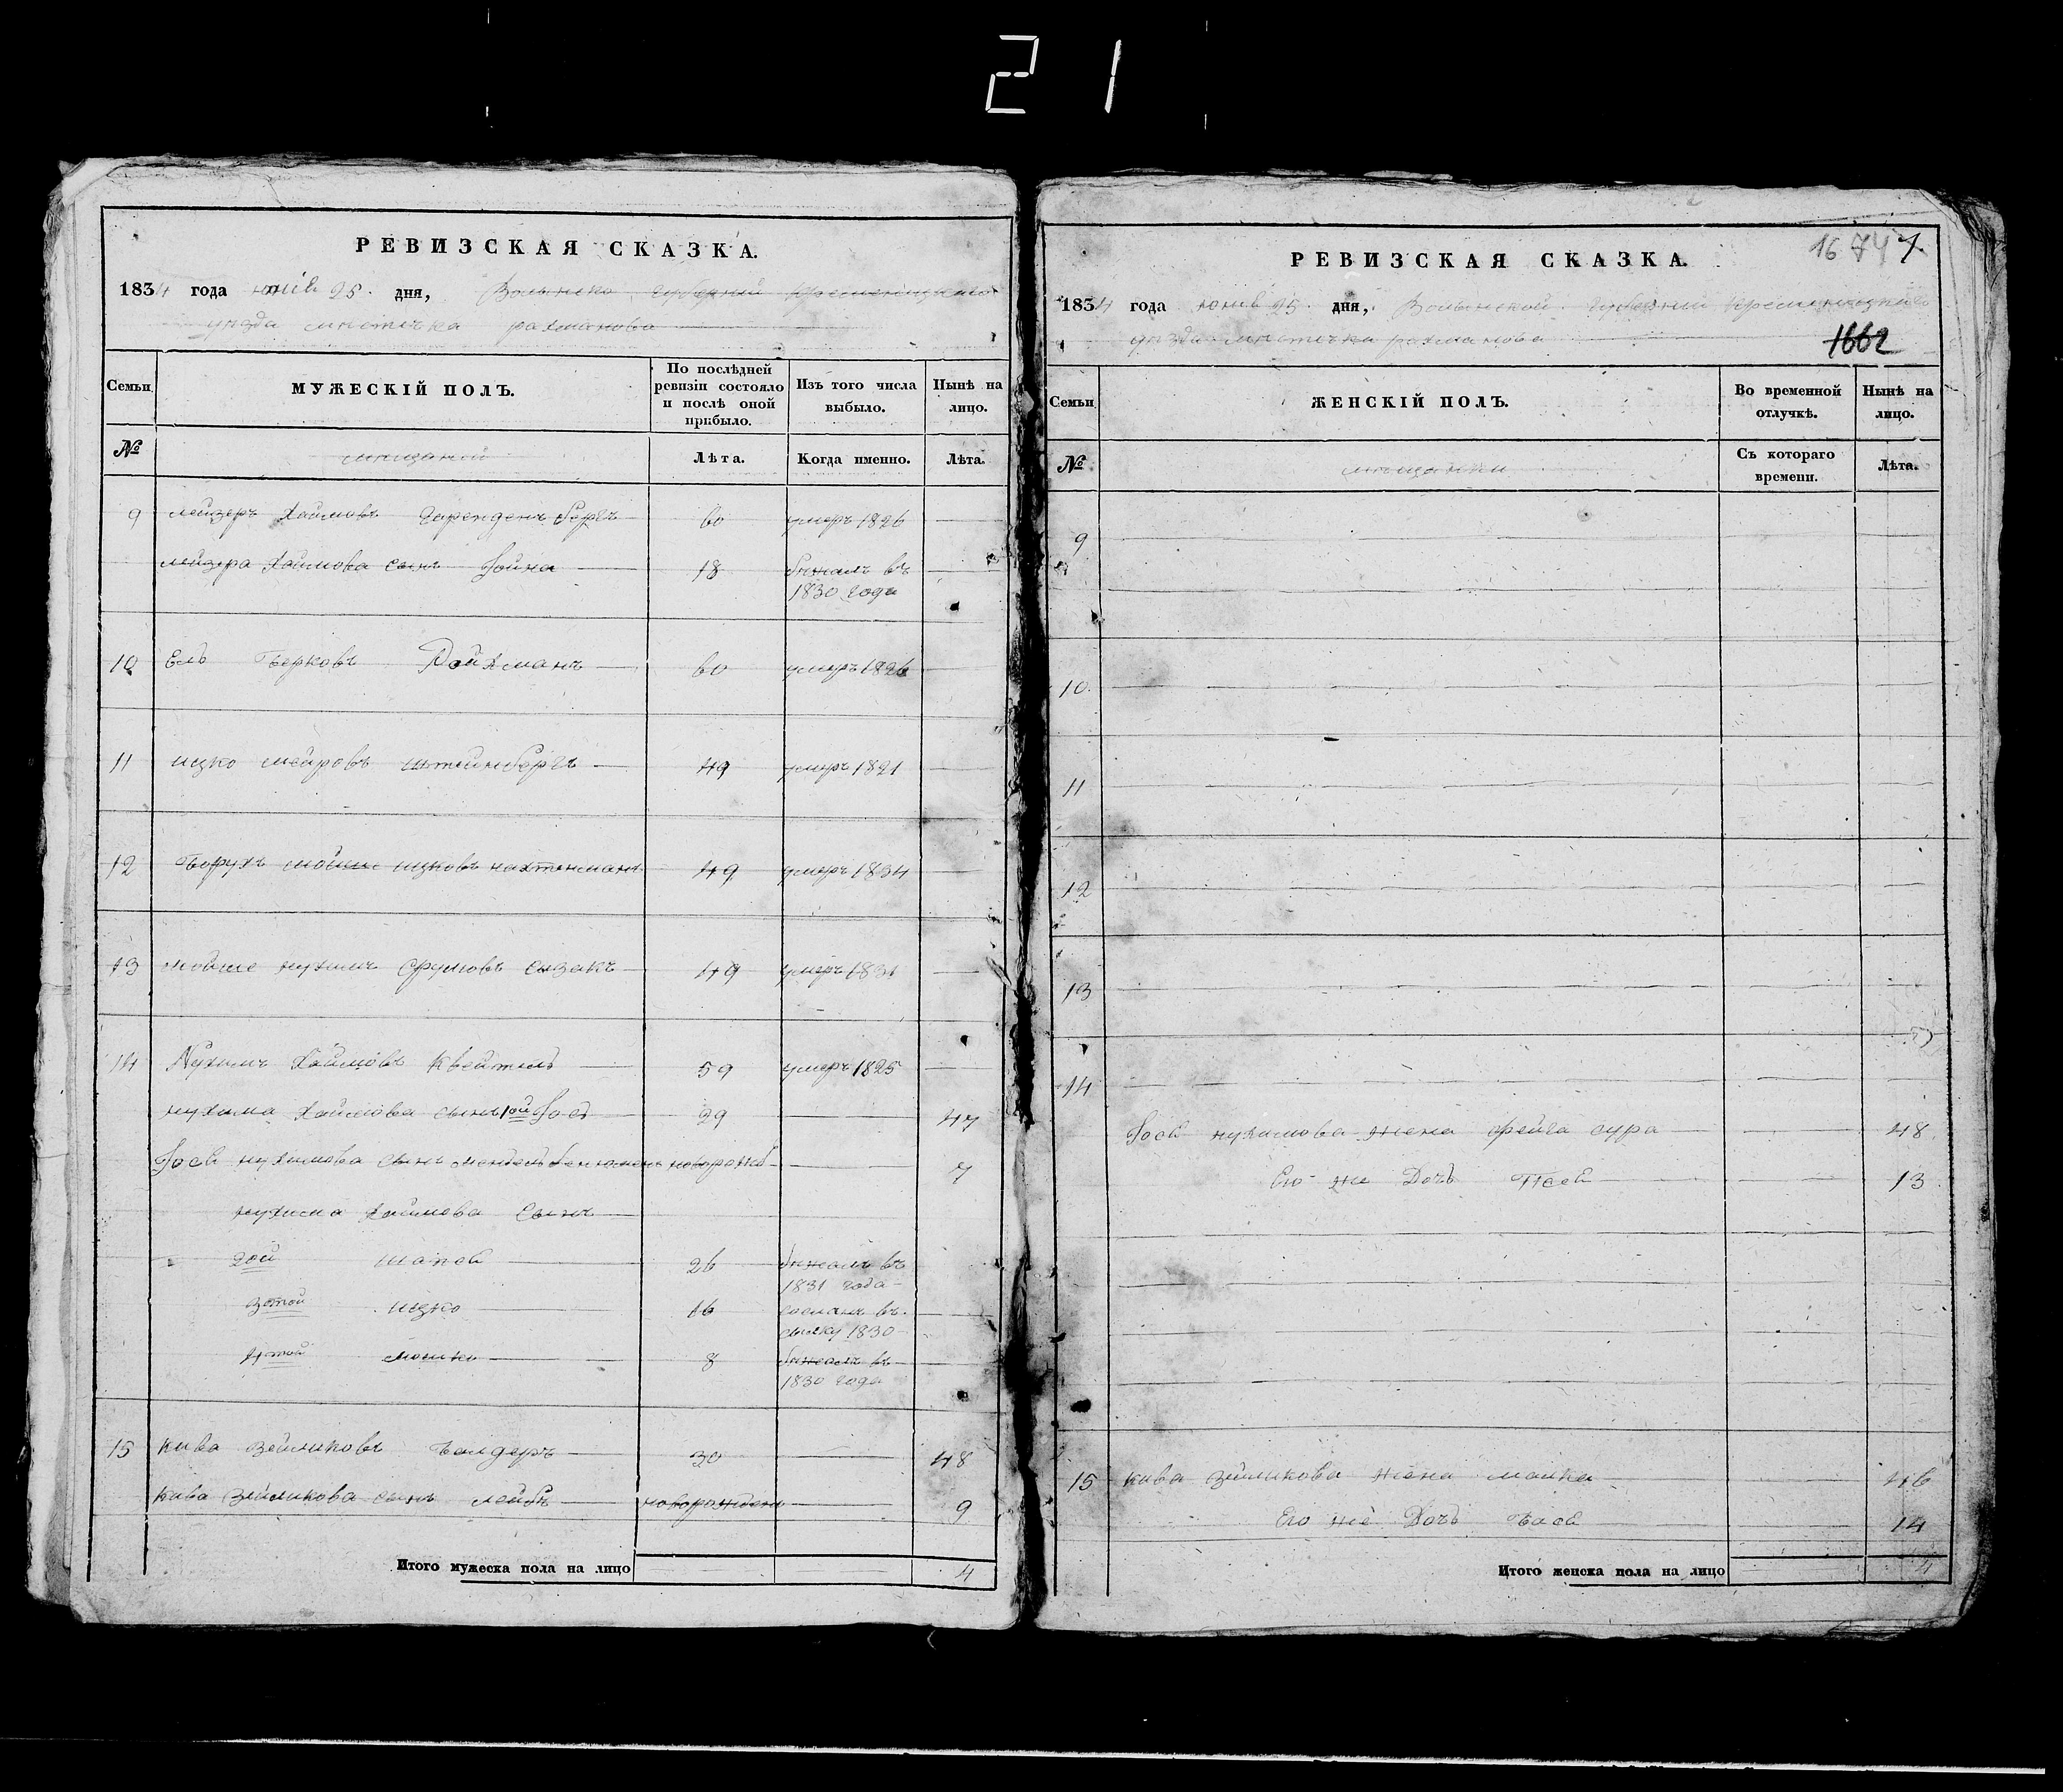 21
РЕВИЗСКАЯ СКАЗКА.
1834 года юнія 25. дня, Волынско губерній Кременецкаго
уезда местечка рахманова
Семьи
МУЖЕСКІЙ ПОЛЪ.
По послѣдней ревизіи состояло и послѣ оной прибыло.
Изъ того числа выбыло.
Нынѣ на лицо.
№
мещаней
Лѣта.
Когда именно.
Лѣта.
9 лейзеръ Хаимовъ 60 умеръ 1826
лейзера Хаимова сынъ Іойна 18 бежалъ въ
1830 года
10 Ель Берковъ Ройхманъ 60 умеръ 1826
11 ицко мейровъ штейнбергъ 49 умеръ 1821
12 Борухъ мойше ицковъ нахтенманъ 49 умеръ 1834
13 мойше нухимъ Срулювъ 49 умеръ 1831
14 Нухимъ Хаймовъ Квейтель 59 умеръ 1825
нухима Хаимова сынъ 1ой Іось 29 47
Іося нухимова сынъ мендель бенюменъ новорожд 7
нухима Хаимова сынъ
2ой шапсе 26 бежалъ въ
1831 года
3той ицко 16 сосланъ въ
сылку 1830
4той мошко 8 бежалъ въ
1830 года
15 Кива Зейликовъ Балдеръ 30 48
Кива Зейликова сынъ лейбъ новорожденъ 9
Итого мужеска пола на лицо 4
16 74 7.
РЕВИЗСКАЯ СКАЗКА.
1834 года юнія 25. дня, Волынской губерній Кременецкаго
уезда местечка рахманова
1662
Семьи
ЖЕНСКІЙ ПОЛЪ.
Во временной отлучкѣ.
Нынѣ на лицо.
№
мещанки
Съ котораго времени.
Лѣта.
9
10.
11
12
13
14
Іося нухимова жена фейга сура 48
Его же Дочь Песя 13
15 Кива Зейликова жена малка 46
Его же Дочь Бася 14
Итого женска пола на лицо 4